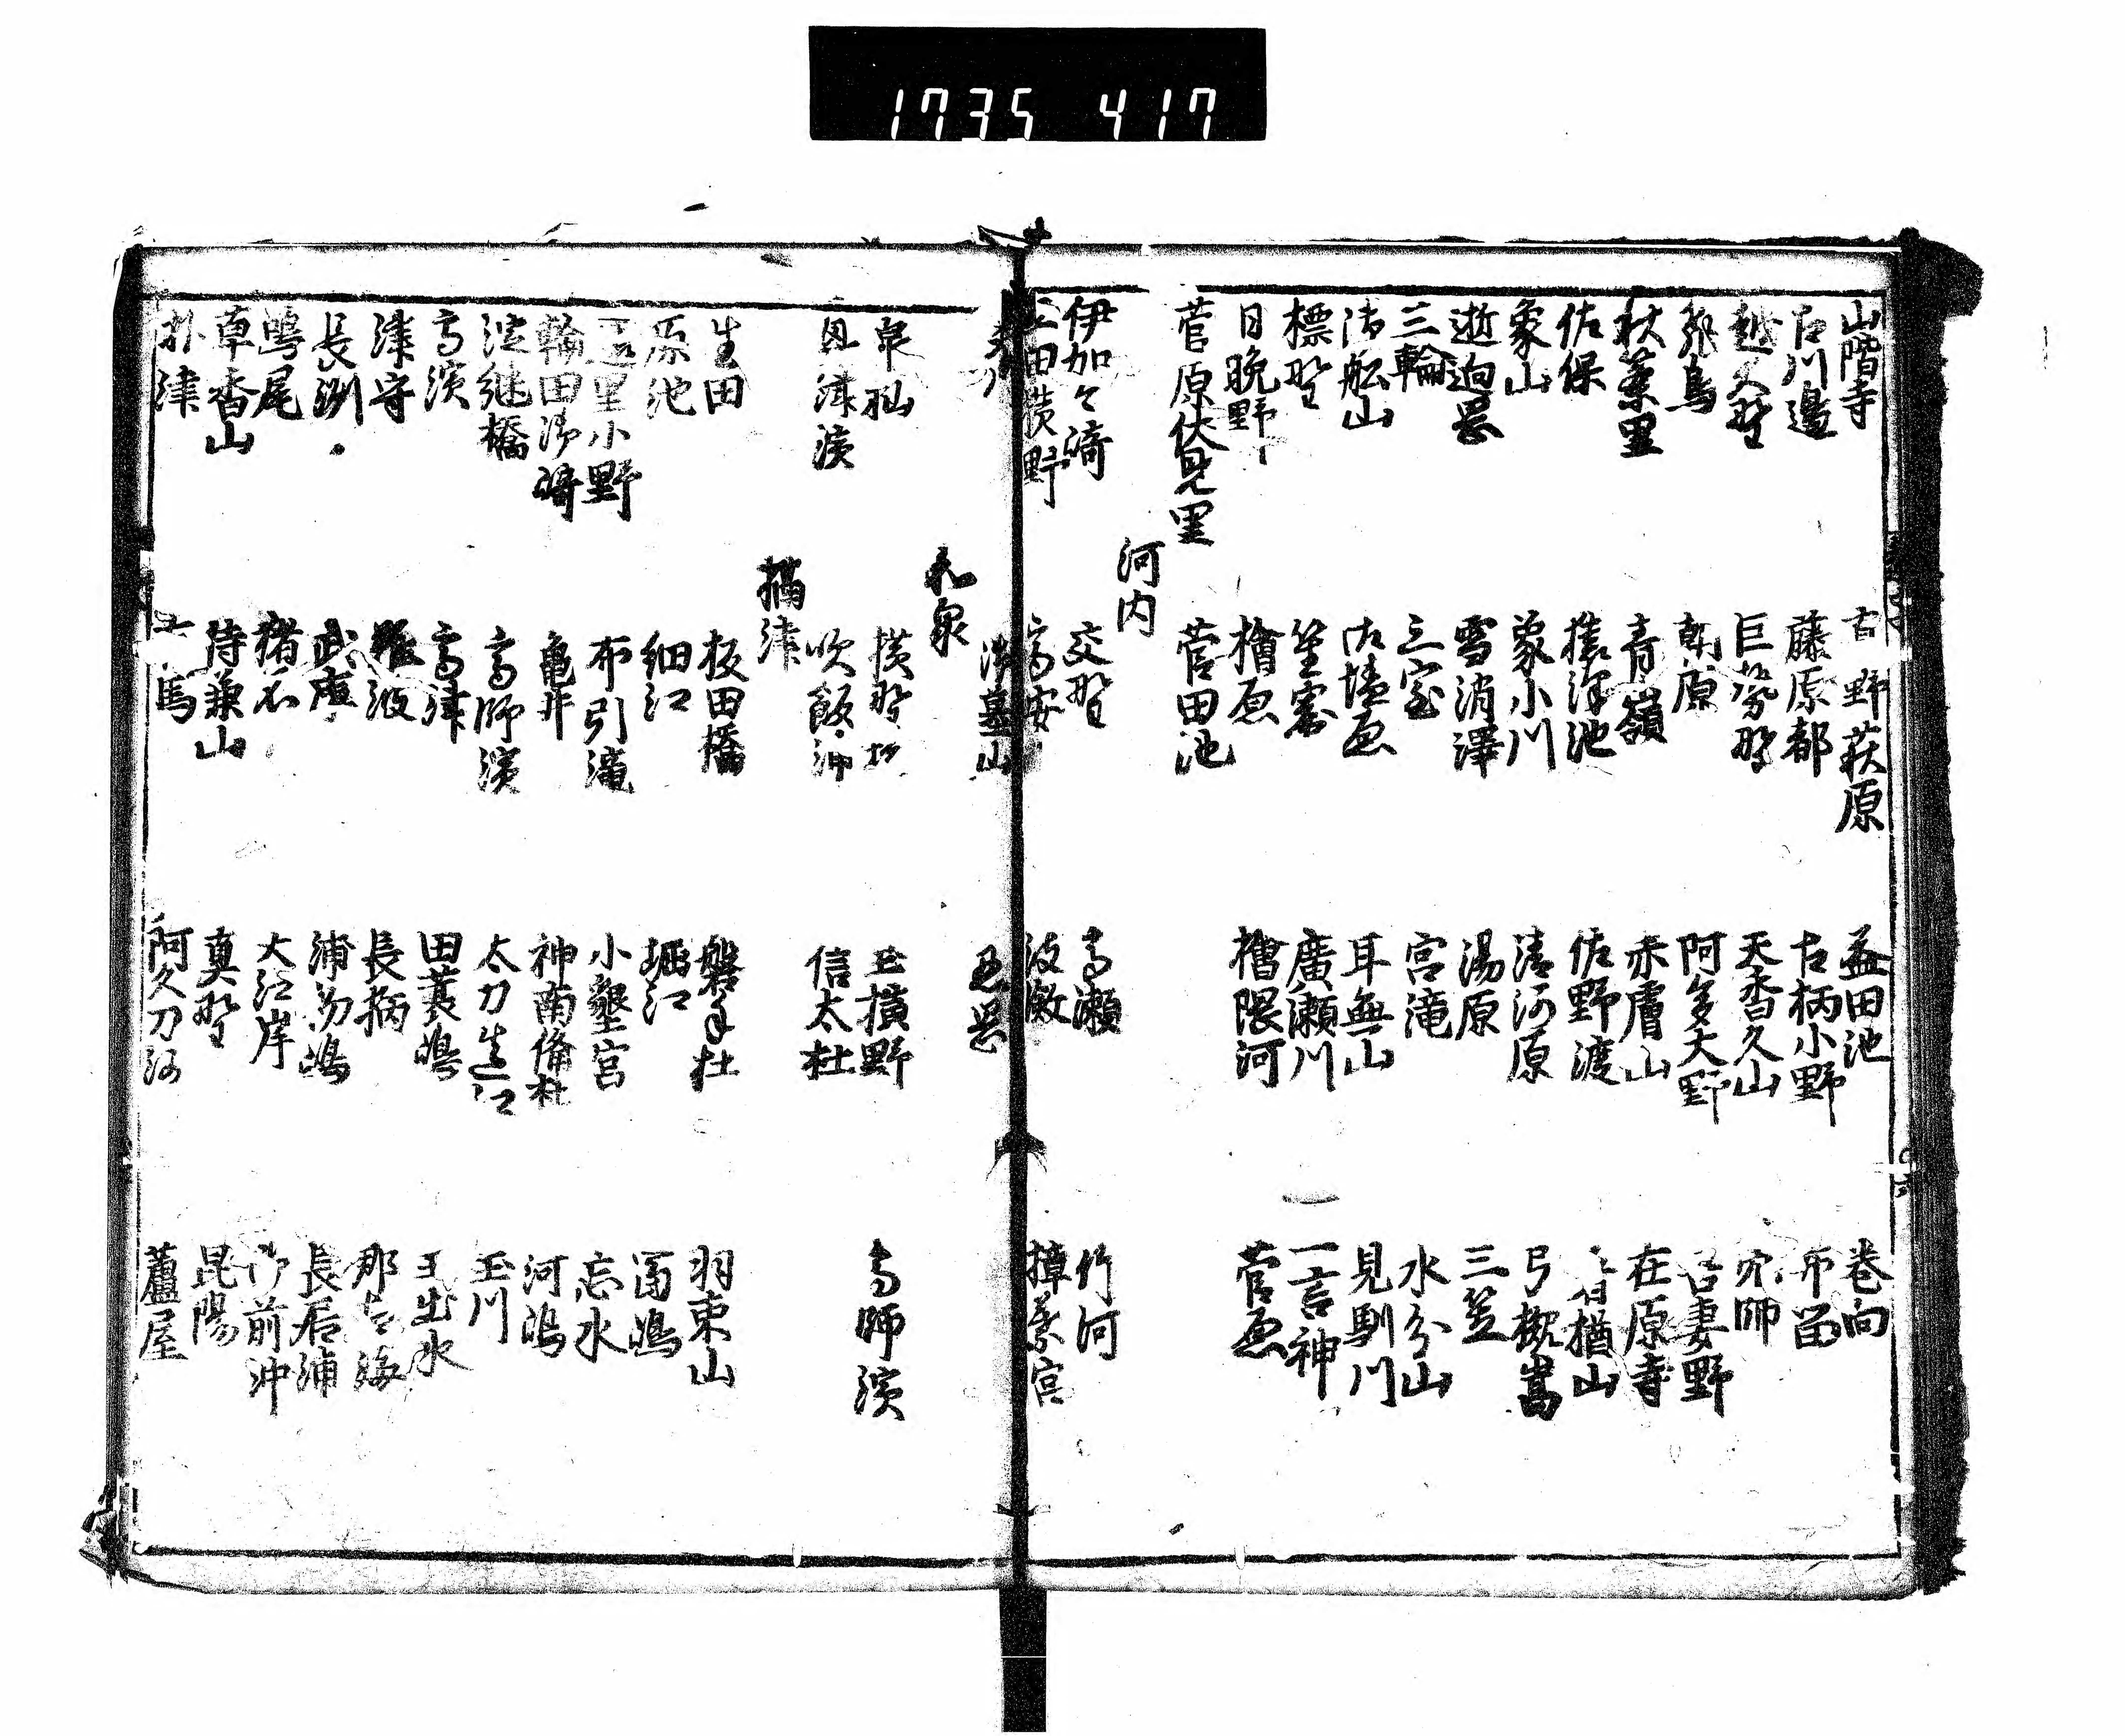 1735 417
山階寺 吉野萩原 益田池 巻向
古川邊 藤原都 古柄小野 布留
越大野 巨勢野 天香久山 穴師
飛鳥 朝原 阿多大野 吾妻野
秋葉里 青嶺 赤膚山 在原寺
佐保 猿澤池 佐野渡 猶山
象山 象小川 清河原 弓槻嵩
逝廽岡 雪消澤 湯原 三笠
三輪 三室 宮滝 水分山
清舩山 古墳原 耳無山 見馴川
標野 笙窟 廣瀬川 一言神
日晩野 檜原 檜隈河 菅原
菅原伏見里 菅田池
河内
伊加々﨑 交野 高瀬 竹河
高安 渡瀲 樟葉宮
磯墓山
和泉
横野 玉横野 高師濱
貝津濱 吹飯浦 信太杜
攝津
生田 板田橋 磐手杜 羽束山
原池 細江 堀江 富嶋
玉里小野 布引滝 小墾宮 忘水
輪田御﨑 亀井 神南備杜 河嶋
浪継橋 高師濱 太刀造江 玉川
高濱 高津 田蓑嶋 玉出水
津守 難波 長柄 那古海
長洲 武庫 浦初嶋 長居浦
鴫尾 猪名 大江岸 御前沖
草香山 待兼山 真野 昆陽
朴津 有馬 阿久刀河 蘆屋